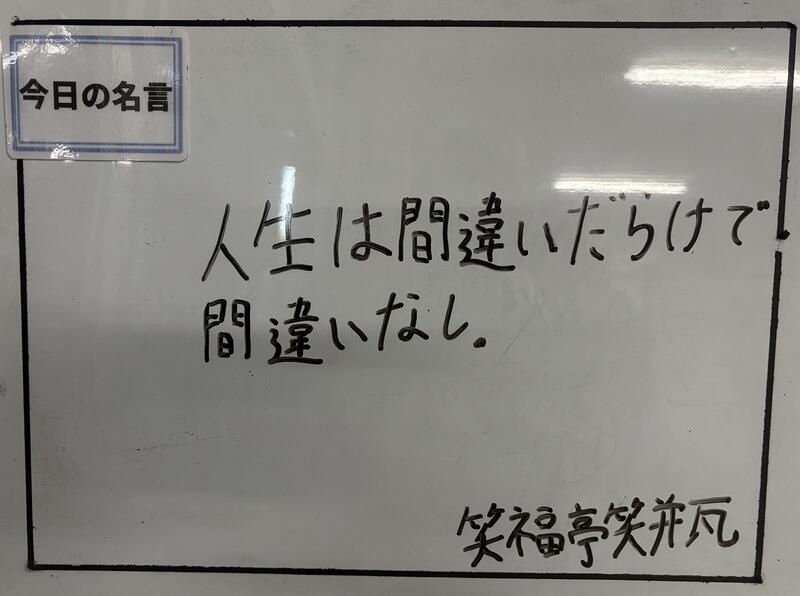 今日の名言
人生は間違いだらけで
間違いなし.
笑福亭笑瓶